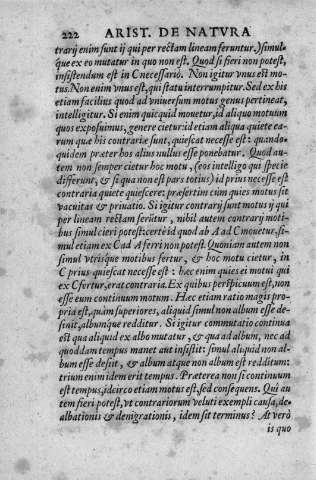 222 ARIST. DE NATVRA
trarij enim sunt ij qui per rectam lineam feruntur.) simul-
que ex eo mutatur in quo non est. Quod si fieri non potest,
insistendum est in C necessariò. Non igitur vnus est mo-
tus. Non enim vnus est, qui statu interrumpitur. Sed ex his
etiam facilius quod ad vniuersum motus genus pertineat,
intelligitur. Si enim quicquid mouetur, id aliquo motuum
quos exposuimus, genere cietur: id etiam aliqua quiete ea-
rum quæ his contrariæ sunt, quiescat necesse est: quando-
quidem præter hos alius nullus esse ponebatur. Quod au-
tem non semper cietur hoc motu, (eos intelligo qui specie
differunt, & si qua non est pars totius) id prius necesse est
contraria quiete quiescere: præsertim cum quies motus sit
vacuitas & priuatio. Si igitur contrarij sunt motus ij qui
per lineam rectam ferũtur, nihil autem contrarij moti-
bus simul cieri potest: certè id quod ab A ad C mouetur, si-
mul etiam ex C ad A ferri non potest. Quoniam autem non
simul vtrisque motibus fertur, & hoc motu cietur, in
C prius quiescat necesse est: hæc enim quies ei motui qui
ex C fertur, erat contraria. Ex quibus perspicuum est, non
esse eum continuum motum. Hæc etiam ratio magis pro-
pria est, quàm superiores, aliquid simul non album esse de-
sinit, albumque redditur. Si igitur commutatio continua
est qua aliquid ex albo mutatur, & qua ad album, nec ad
quoddam tempus manet aut insistit: simul aliquid non al-
bum esse desiit, & album atque non album est redditum:
trium enim idem erit tempus. Præterea non si continuum
est tempus, idcirco etiam motus est, sed consequens. Qui au
tem fieri potest, vt contrariorum veluti exempli causa, de-
albationis & denigrationis, idem sit terminus? At verò
is quo